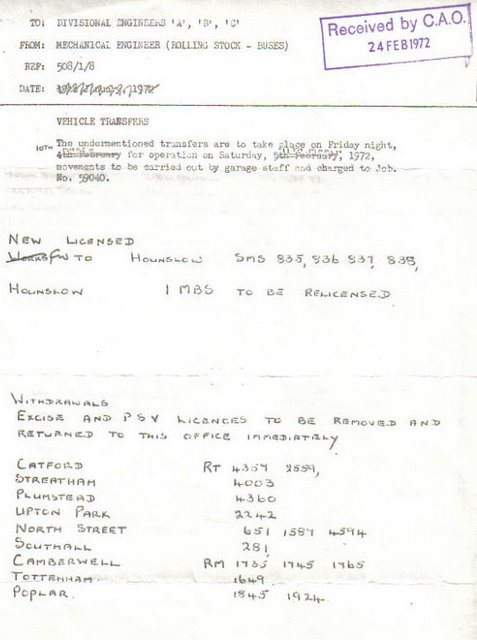 TO: DIVISIONAL ENGINEERS 'A', 'B', 'C'
Received by C.A.O.
24 FEB 1972
FROM: MECHANICAL ENGINEER (ROLLING STOCK - BUSES)
REF: 508/1/8
DATE: 1972
VEHICLE TRANSFERS
The undermentioned transfers are to take place on Friday night,
10TH 4th February for operation on Saturday, 5th February, 1972,
movements to be carried out by garage staff and charged to Job.
No. 59040.
NEW LICENSED
WORKS FW TO HOUNSLOW SMS 835, 836 837, 838,
HOUNSLOW 1 MBS TO BE RELICENSED
WITHDRAWALS
EXCISE AND PSV LICENCES TO BE REMOVED AND
RETURNED TO THIS OFFICE IMMEDIATELY
CATFORD RT 4357 2559,
STREATHAM 4003
PLUMSTEAD 4360
UPTON PARK 2242
NORTH STREET 651 1587 4594
SOUTHALL 281
CAMBERWELL RM 1735 1745 1765
TOTTENHAM 1649
POPLAR. 1845 1924